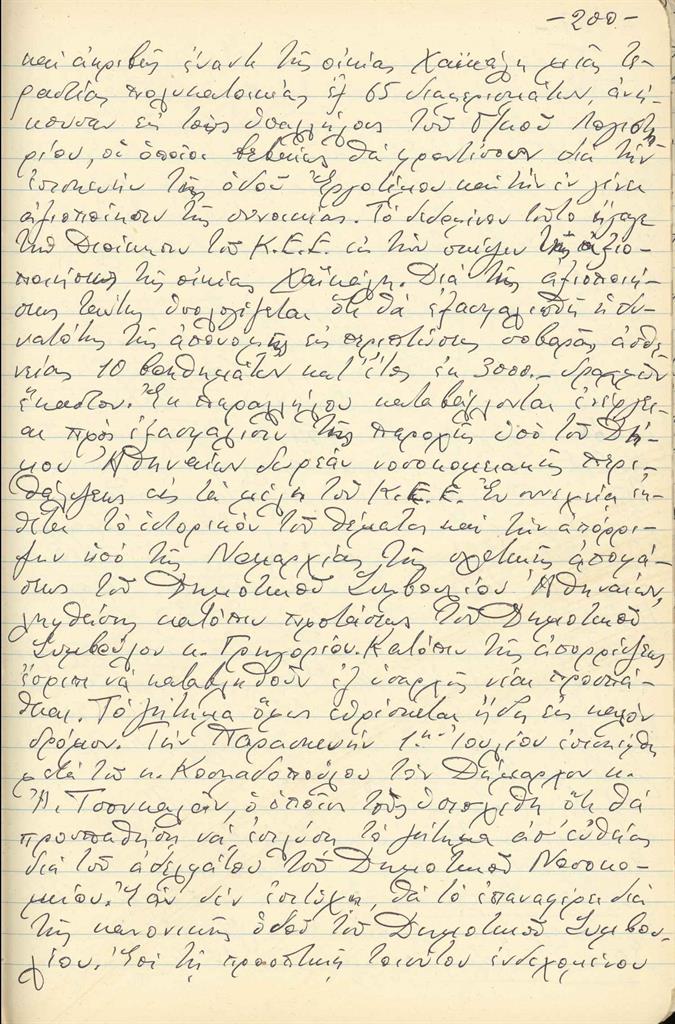 -200-
καὶ ἀκριβῶς ἔναντι τῆς οἰκίας Χαϊκάλη μιᾶς τε-
ραστίας πολυκατοικίας ἐξ 65 διαμερισμάτων, ἀνή-
κουσαν εἰς τοὺς ὑπαλλήλους τοῦ Γ/κοῦ Λογιστη-
ρίου, οἱ ὁποῖοι βεβαίως θὰ φροντίσουν διὰ τὴν
ἐπισκευὴν τῆς ὁδοῦ Ἐργοτίμου καὶ τὴν ἐν γένει
ἀξιοποίησιν τῆς συνοικίας. Τὸ δεδομένον τοῦτο ἤγαγε
τὴν Διοίκησιν τοῦ Κ.Ε.Ε. εἰς τὴν σκέψιν τῆς ἀξιο-
ποιήσεως τῆς οἰκίας Χαϊκάλη. Διὰ τῆς ἀξιοποιή-
σεως ταύτης ὑπολογίζεται ὅτι θὰ ἐξασφαλισθῇ ἡ δυ-
νατότης τῆς ἀπονομῆς εἰς περιπτώσεις σοβαρᾶς ἀσθε-
νείας 10 βοηθημάτων κατ' ἔτος ἐκ 3000.- δραχμῶν
ἕκαστον. Ἐκ παραλλήλου καταβάλλονται ἐνέργει-
αι πρὸς ἐξασφάλισιν τῆς παροχῆς ὑπὸ τοῦ Δή-
μου Ἀθηναίων δωρεὰν νοσοκομειακῆς περι-
θάλψεως εἰς τὰ μέλη τοῦ Κ.Ε.Ε. Ἐν συνεχείᾳ ἐκ-
θέτει τὸ ἱστορικὸν τοῦ θέματος καὶ τὴν ἀπόρρι-
ψιν ὑπὸ τῆς Νομαρχίας τῆς σχετικῆς ἀποφά-
σεως τοῦ Δημοτικοῦ Συμβουλίου Ἀθηναίων,
ληφθείσης κατόπιν προτάσεως τοῦ Δημοτικοῦ
Συμβούλου κ. Γρηγορίου. Κατόπιν τῆς ἀπορρίψεως
ἔπρεπε νὰ καταβληθοῦν ἐξ ὑπαρχῆς νέαι προσπά-
θειαι. Τὸ ζήτημα ὅμως εὑρίσκεται ἤδη εἰς καλὸν
δρόμον. Τὴν Παρασκευὴν 1ην Ἰουλίου ἐπεσκέφθη
μετὰ τοῦ κ. Κοσμαδοπούλου τὸν Δήμαρχον κ.
Ἀ. Τσουκαλᾶν, ὁ ὁποῖος τοῖς ὑπεσχέθη ὅτι θὰ
προσπαθήσῃ νὰ ἐπιλύσῃ τὸ ζήτημα ἀπ' εὐθείας
διὰ τοῦ ἀδελφάτου τοῦ Δημοτικοῦ Νοσοκο-
μείου. Ἐὰν δὲν ἐπιτύχῃ, θὰ τὸ ἐπαναφέρει διὰ
τῆς κανονικῆς ὁδοῦ τοῦ Δημοτικοῦ Συμβου-
λίου. Ἐπὶ τῇ προοπτικῇ τοιούτου ἐνδεχομένου